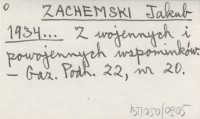 o
ZACHEMSKI Jakub
1934... Z wojennych i
powojennych wspominków.
– Gaz. Podh. 22, nr 20.